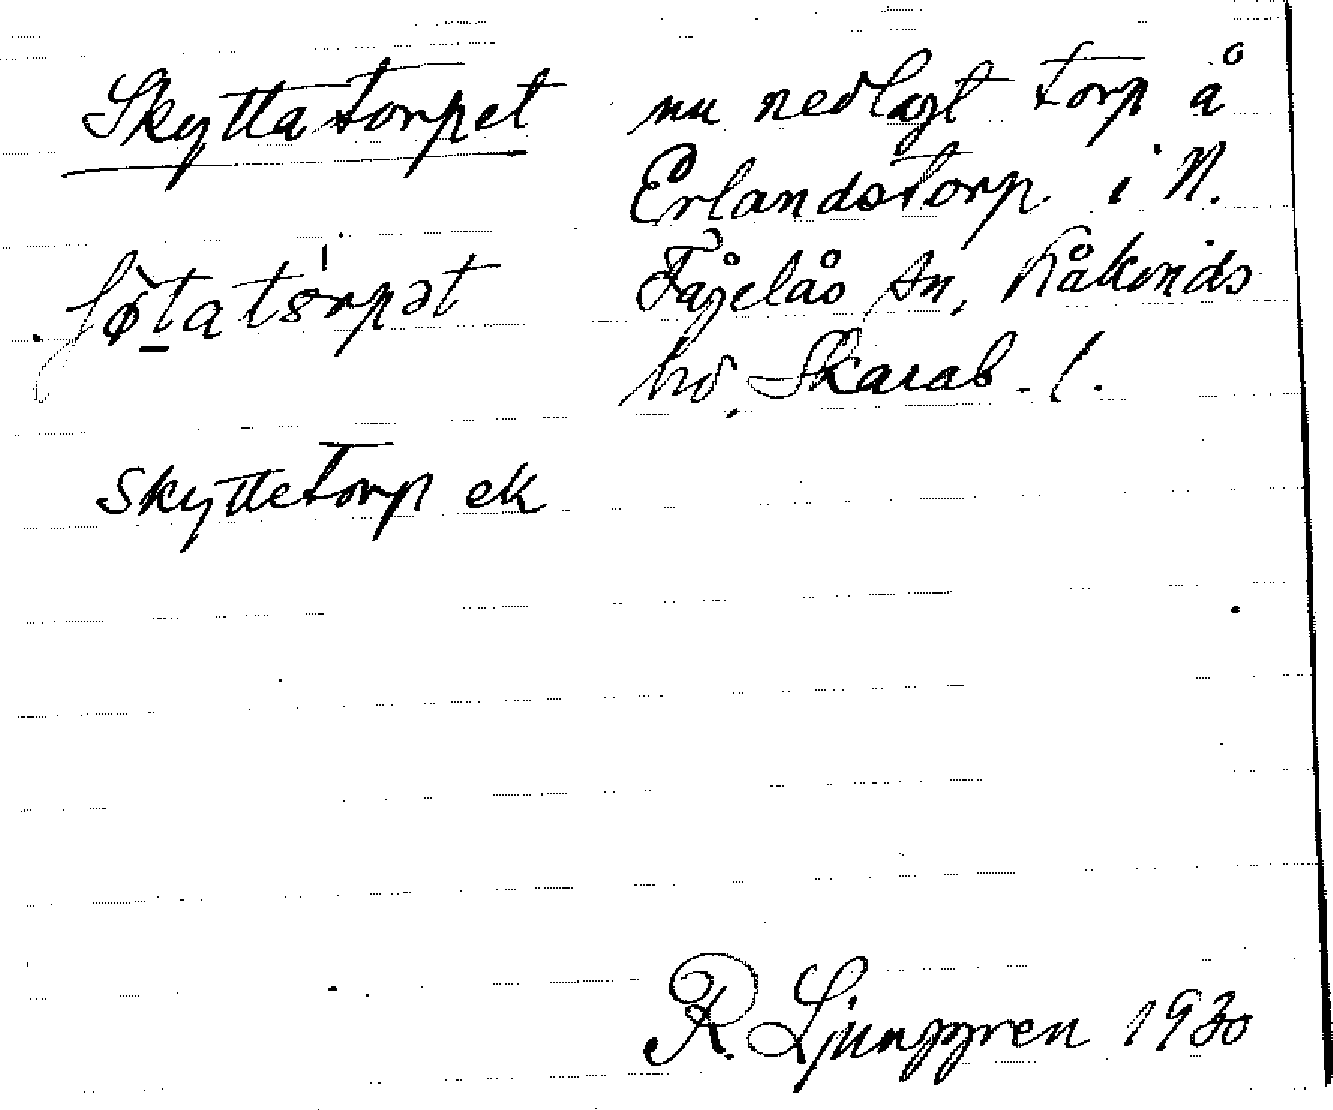 Skyttatorpet
ſø̀tatὸrpət
Skyttetorp ek
nu nedlagt torp å
Erlandstorp i N.
Fågelås sn, Kåkinds
hd, Skarab. l.
R. Ljunggren 1930